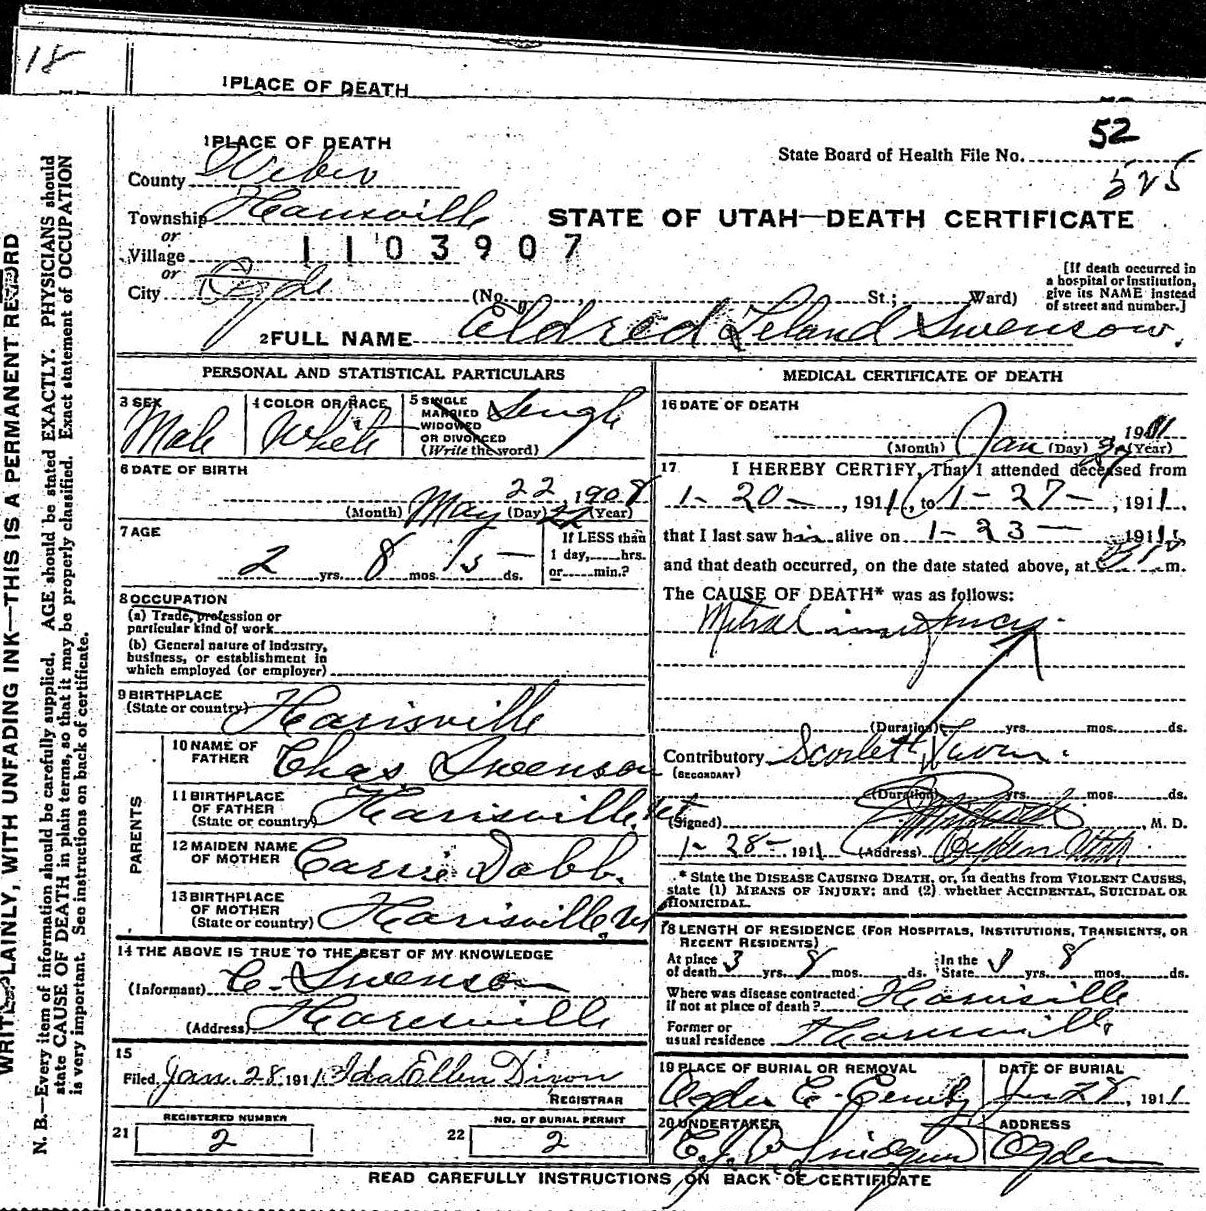 18
1 PLACE OF DEATH
52
1 PLACE OF DEATH
State Board of Health File No.
525
County Weber
Township Harrisville
STATE OF UTAH—DEATH CERTIFICATE
or
Village 1103907
or
City Ogde
(No. St.; Ward)
[If death occurred in
a hospital or institution,
give its NAME instead
of street and number.]
2 FULL NAME Aldred Leland Swenson.
PERSONAL AND STATISTICAL PARTICULARS
3 SEX Male
4 COLOR OR RACE White
5 SINGLE
MARRIED
WIDOWED
OR DIVORCED
(Write the word)
6 DATE OF BIRTH
May 22, 1908
(Month) (Day) 22 (Year)
7 AGE
2 yrs. 8 mos. 5 ds.
If LESS than
1 day, hrs.
or min.?
8 OCCUPATION
(a) Trade, profession or
particular kind of work
(b) General nature of industry,
business, or establishment in
which employed (or employer)
9 BIRTHPLACE
(State or country) Harisville
PARENTS
10 NAME OF
FATHER Chas Swenson
11 BIRTHPLACE
OF FATHER
(State or country) Harisville, Ut
12 MAIDEN NAME
OF MOTHER Carrie Dabb.
13 BIRTHPLACE
OF MOTHER
(State or country) Harisville, Ut
14 THE ABOVE IS TRUE TO THE BEST OF MY KNOWLEDGE
(Informant) C. Swenson
(Address) Harisville
15
Filed Jan. 28, 1911 Ida Ellen Dixon
REGISTRAR
REGISTERED NUMBER
21 2
NO. OF BURIAL PERMIT
22 2
MEDICAL CERTIFICATE OF DEATH
16 DATE OF DEATH
Jan 1911
(Month) (Day) (Year)
17 I HEREBY CERTIFY, That I attended deceased from
1-20-, 1911, to 1-27-, 1911,
that I last saw his alive on 1-23-, 1911,
and that death occurred, on the date stated above, at m.
The CAUSE OF DEATH* was as follows:
Mitral
(Duration) yrs. mos. ds.
Contributory Scarlet Fever.
(SECONDARY)
(Duration) yrs. mos. ds.
(Signed) , M. D.
1-28-1911 (Address) Ogden Utah
* State the DISEASE CAUSING DEATH, or, in deaths from VIOLENT CAUSES,
state (1) MEANS OF INJURY; and (2) whether ACCIDENTAL, SUICIDAL OR
HOMICIDAL.
18 LENGTH OF RESIDENCE (FOR HOSPITALS, INSTITUTIONS, TRANSIENTS, OR
RECENT RESIDENTS)
At place
of death 3 yrs. 8 mos. ds. In the
State yrs. 8 mos. ds.
Where was disease contracted
if not at place of death? Harrisville
Former or
usual residence Harrisville
19 PLACE OF BURIAL OR REMOVAL
Ogden C.
DATE OF BURIAL
Jan 28, 1911
20 UNDERTAKER
ADDRESS
Ogden
READ CAREFULLY INSTRUCTIONS ON BACK OF CERTIFICATE
WRITE PLAINLY, WITH UNFADING INK—THIS IS A PERMANENT RECORD
N. B.—Every item of information should be carefully supplied. AGE should be stated EXACTLY. PHYSICIANS should
state CAUSE OF DEATH in plain terms, so that it may be properly classified. Exact statement of OCCUPATION
is very important. See instructions on back of certificate.